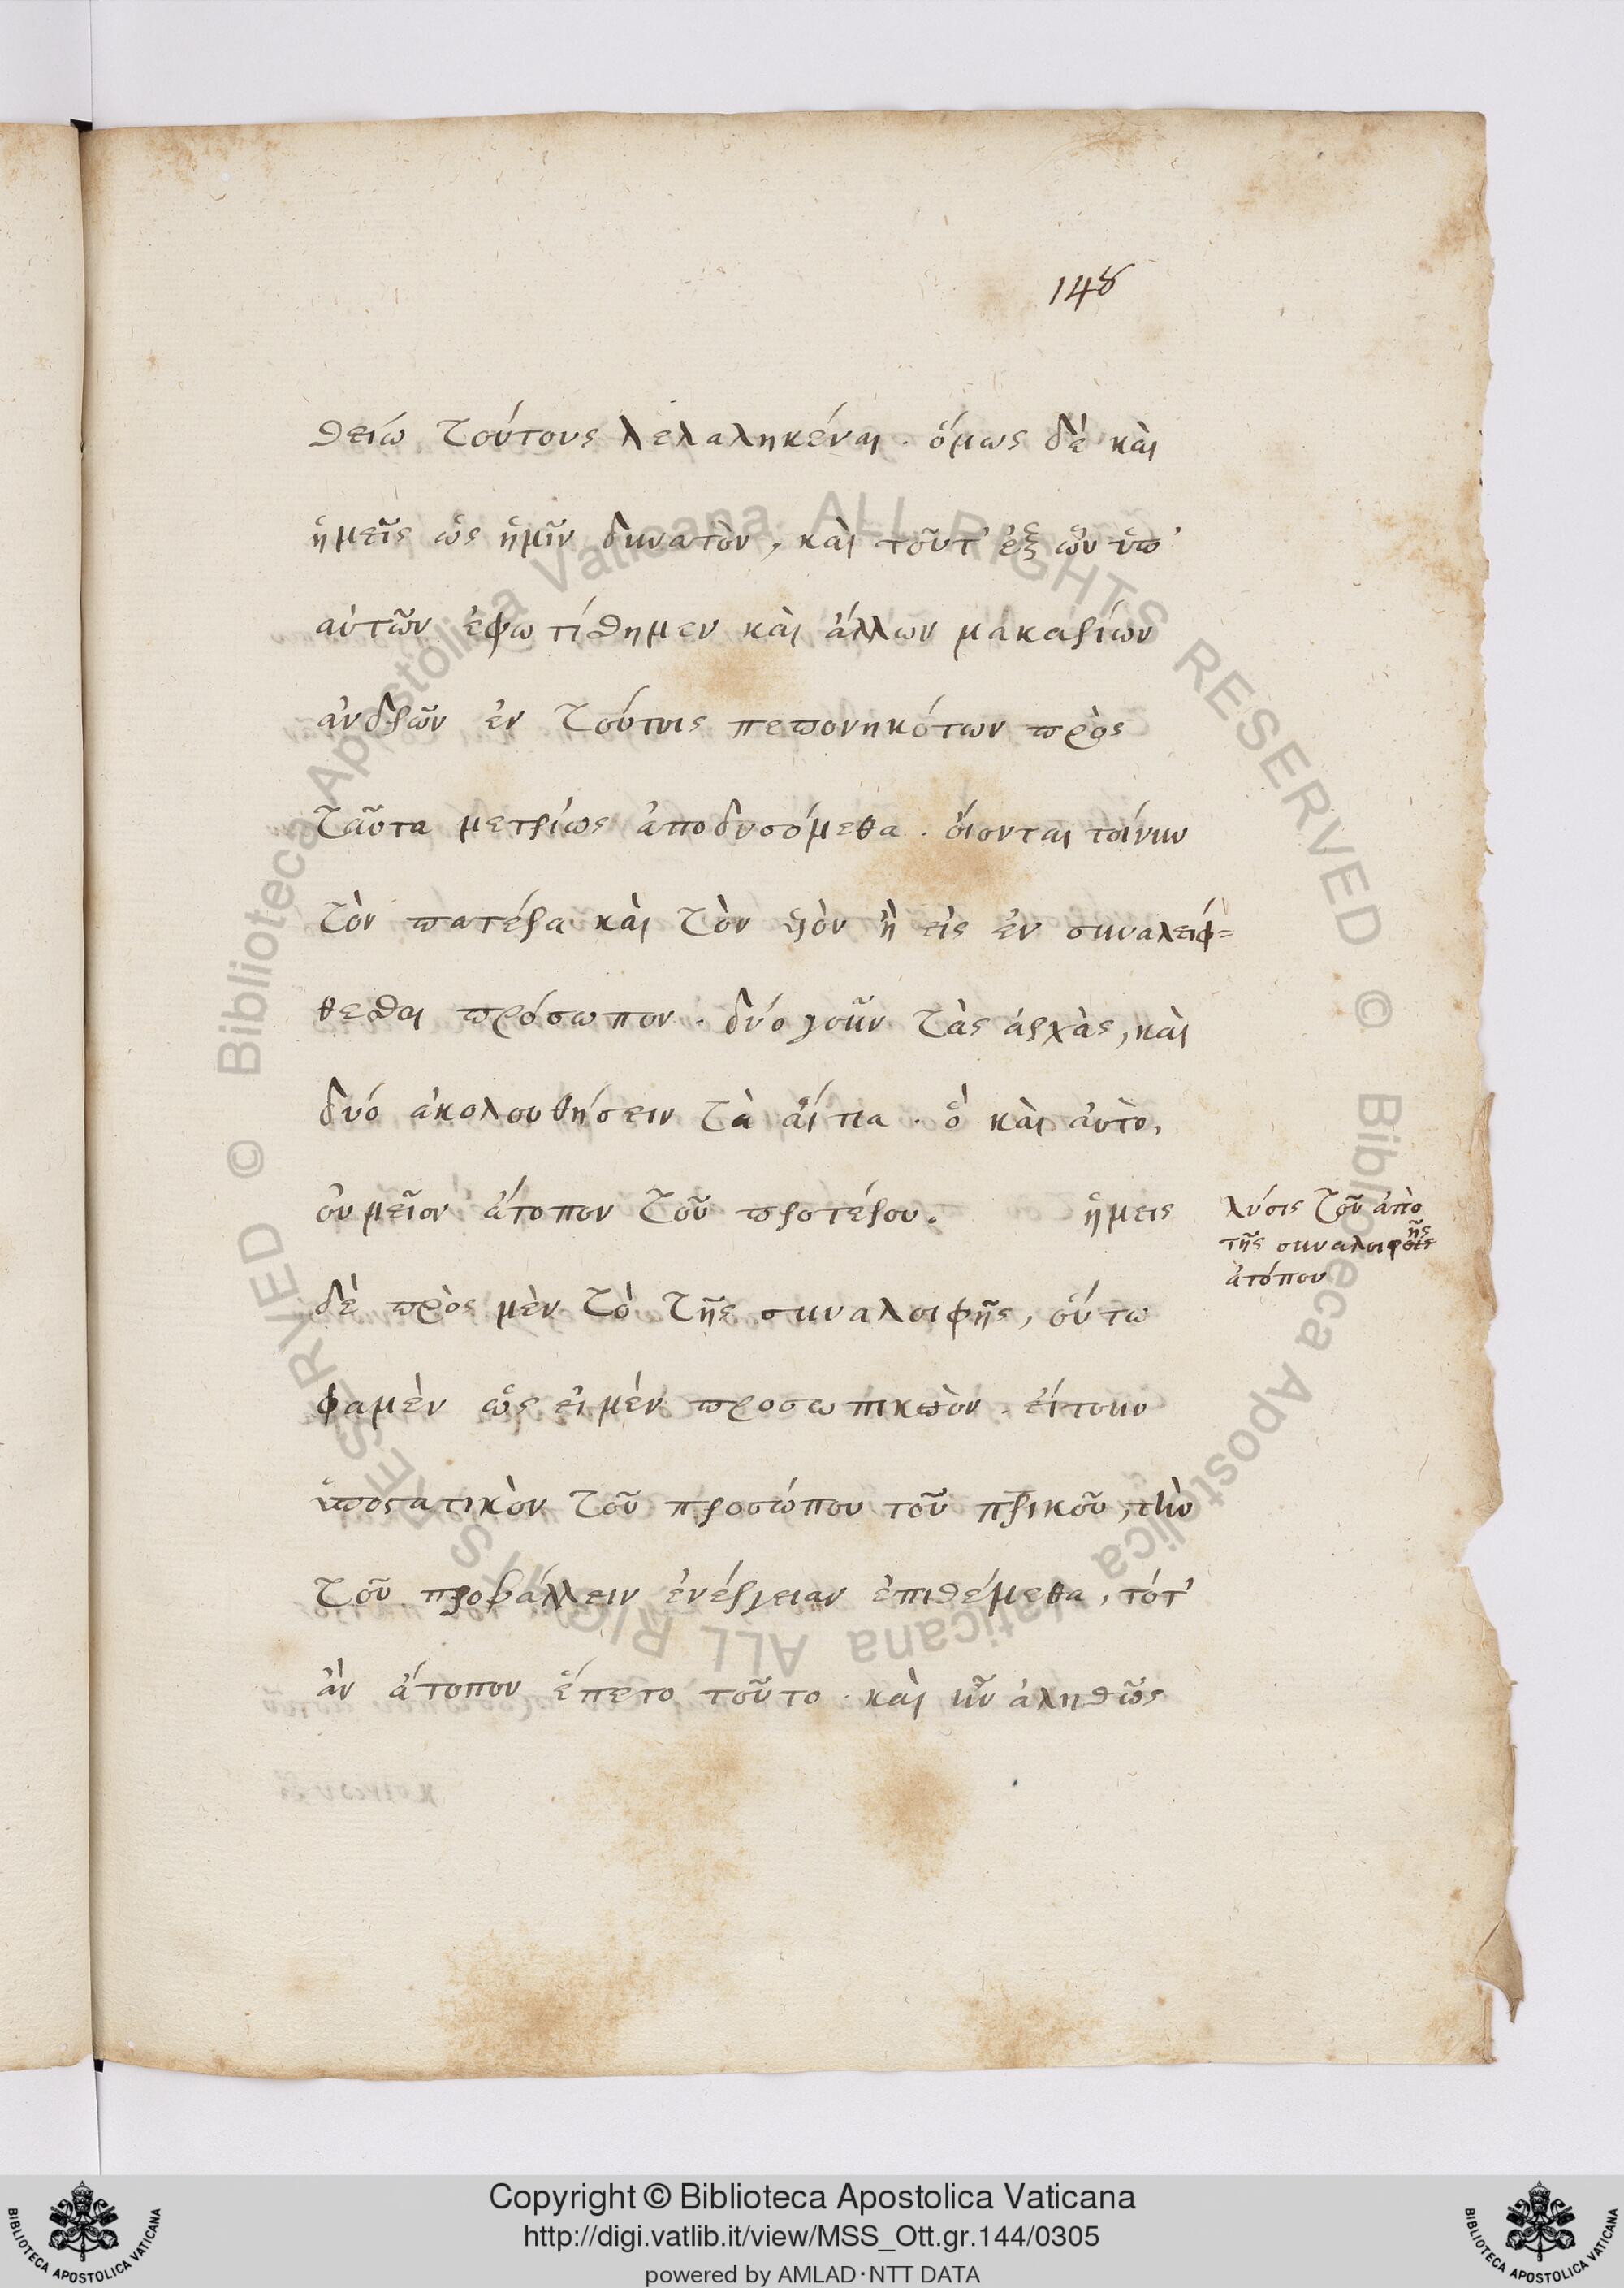 148
θείω τούτους λελαληκέναι. ὅμως δὲ καὶ
ἡμεῖς ὡς ἡμῖν δυνατὸν, καὶ τοῦτ' ἐξ ὧν ὑπ'
αὐτῶν ἐφωτίθημεν καὶ ἄλλων μακαρίων
ἀνδρῶν ἐν τούτοις πεπονηκότων πρὸς
ταῦτα μετρίως ἀποδυσόμεθα. οἴονται τοίνυν
τὸν πατέρα καὶ τὸν υἱὸν ἢ εἰς ἓν συναλειφ=
θεσθαι πρόσωπον. δύο γοῦν τὰς ἀρχὰς, καὶ
δύο ἀκολουθήσειν τὰ αἴτια. ὃ καὶ αὐτὸ,
οὐ μεῖον ἄτοπον τοῦ προτέρου. ἡμεις
λύσις τοῦ ἀπὸ
τῆς συναλοιφῆς
ἀτόπου
δὲ πρὸς μὲν τὸ τῆς συναλοιφῆς, οὕτω
φαμὲν ὡς εἰ μὲν προσωπικὸν. εἴτουν
ὑποστατικὸν τοῦ προσώπου τοῦ πρικοῦ, τὴν
τοῦ προβάλλειν ἐνέργειαν ἐπιθέμεθα, τότ'
ἂν ἄτοπον εἵπετο τοῦτο. καὶ ἦν ἀληθῶς
Copyright © Biblioteca Apostolica Vaticana
http://digi.vatlib.it/view/MSS_Ott.gr.144/0305
powered by AMLAD·NTT DATA
BIBLIOTECA APOSTOLICA VATICANA
BIBLIOTECA APOSTOLICA VATICANA
© Biblioteca Apostolica Vaticana ALL RIGHTS RESERVED © Biblioteca Apostolica Vaticana ALL RIGHTS RESERVED